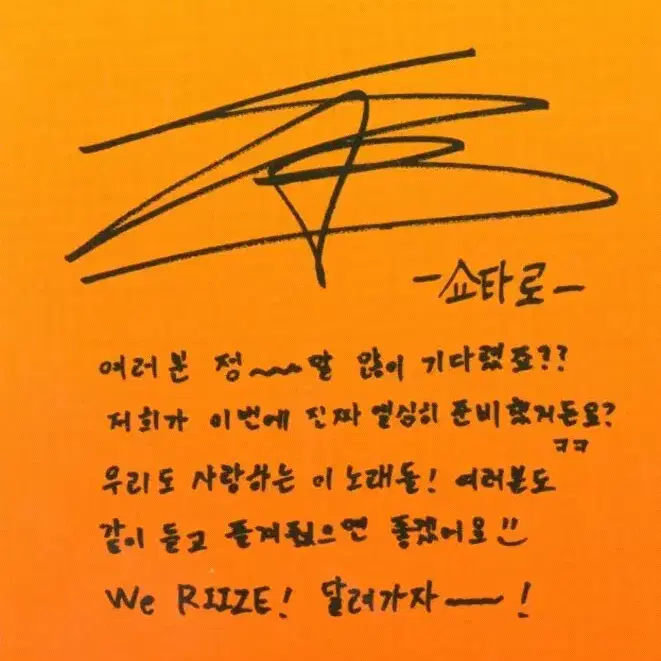 -쇼타로-
여러분 정~~말 많이 기다렸죠??
저희가 이번에 진짜 열심히 준비했거든요?
ㅋㅋ
우리도 사랑하는 이 노래들! 여러분도
같이 듣고 즐겨줬으면 좋겠어요
We RIIZE! 달려가자ㅡ!